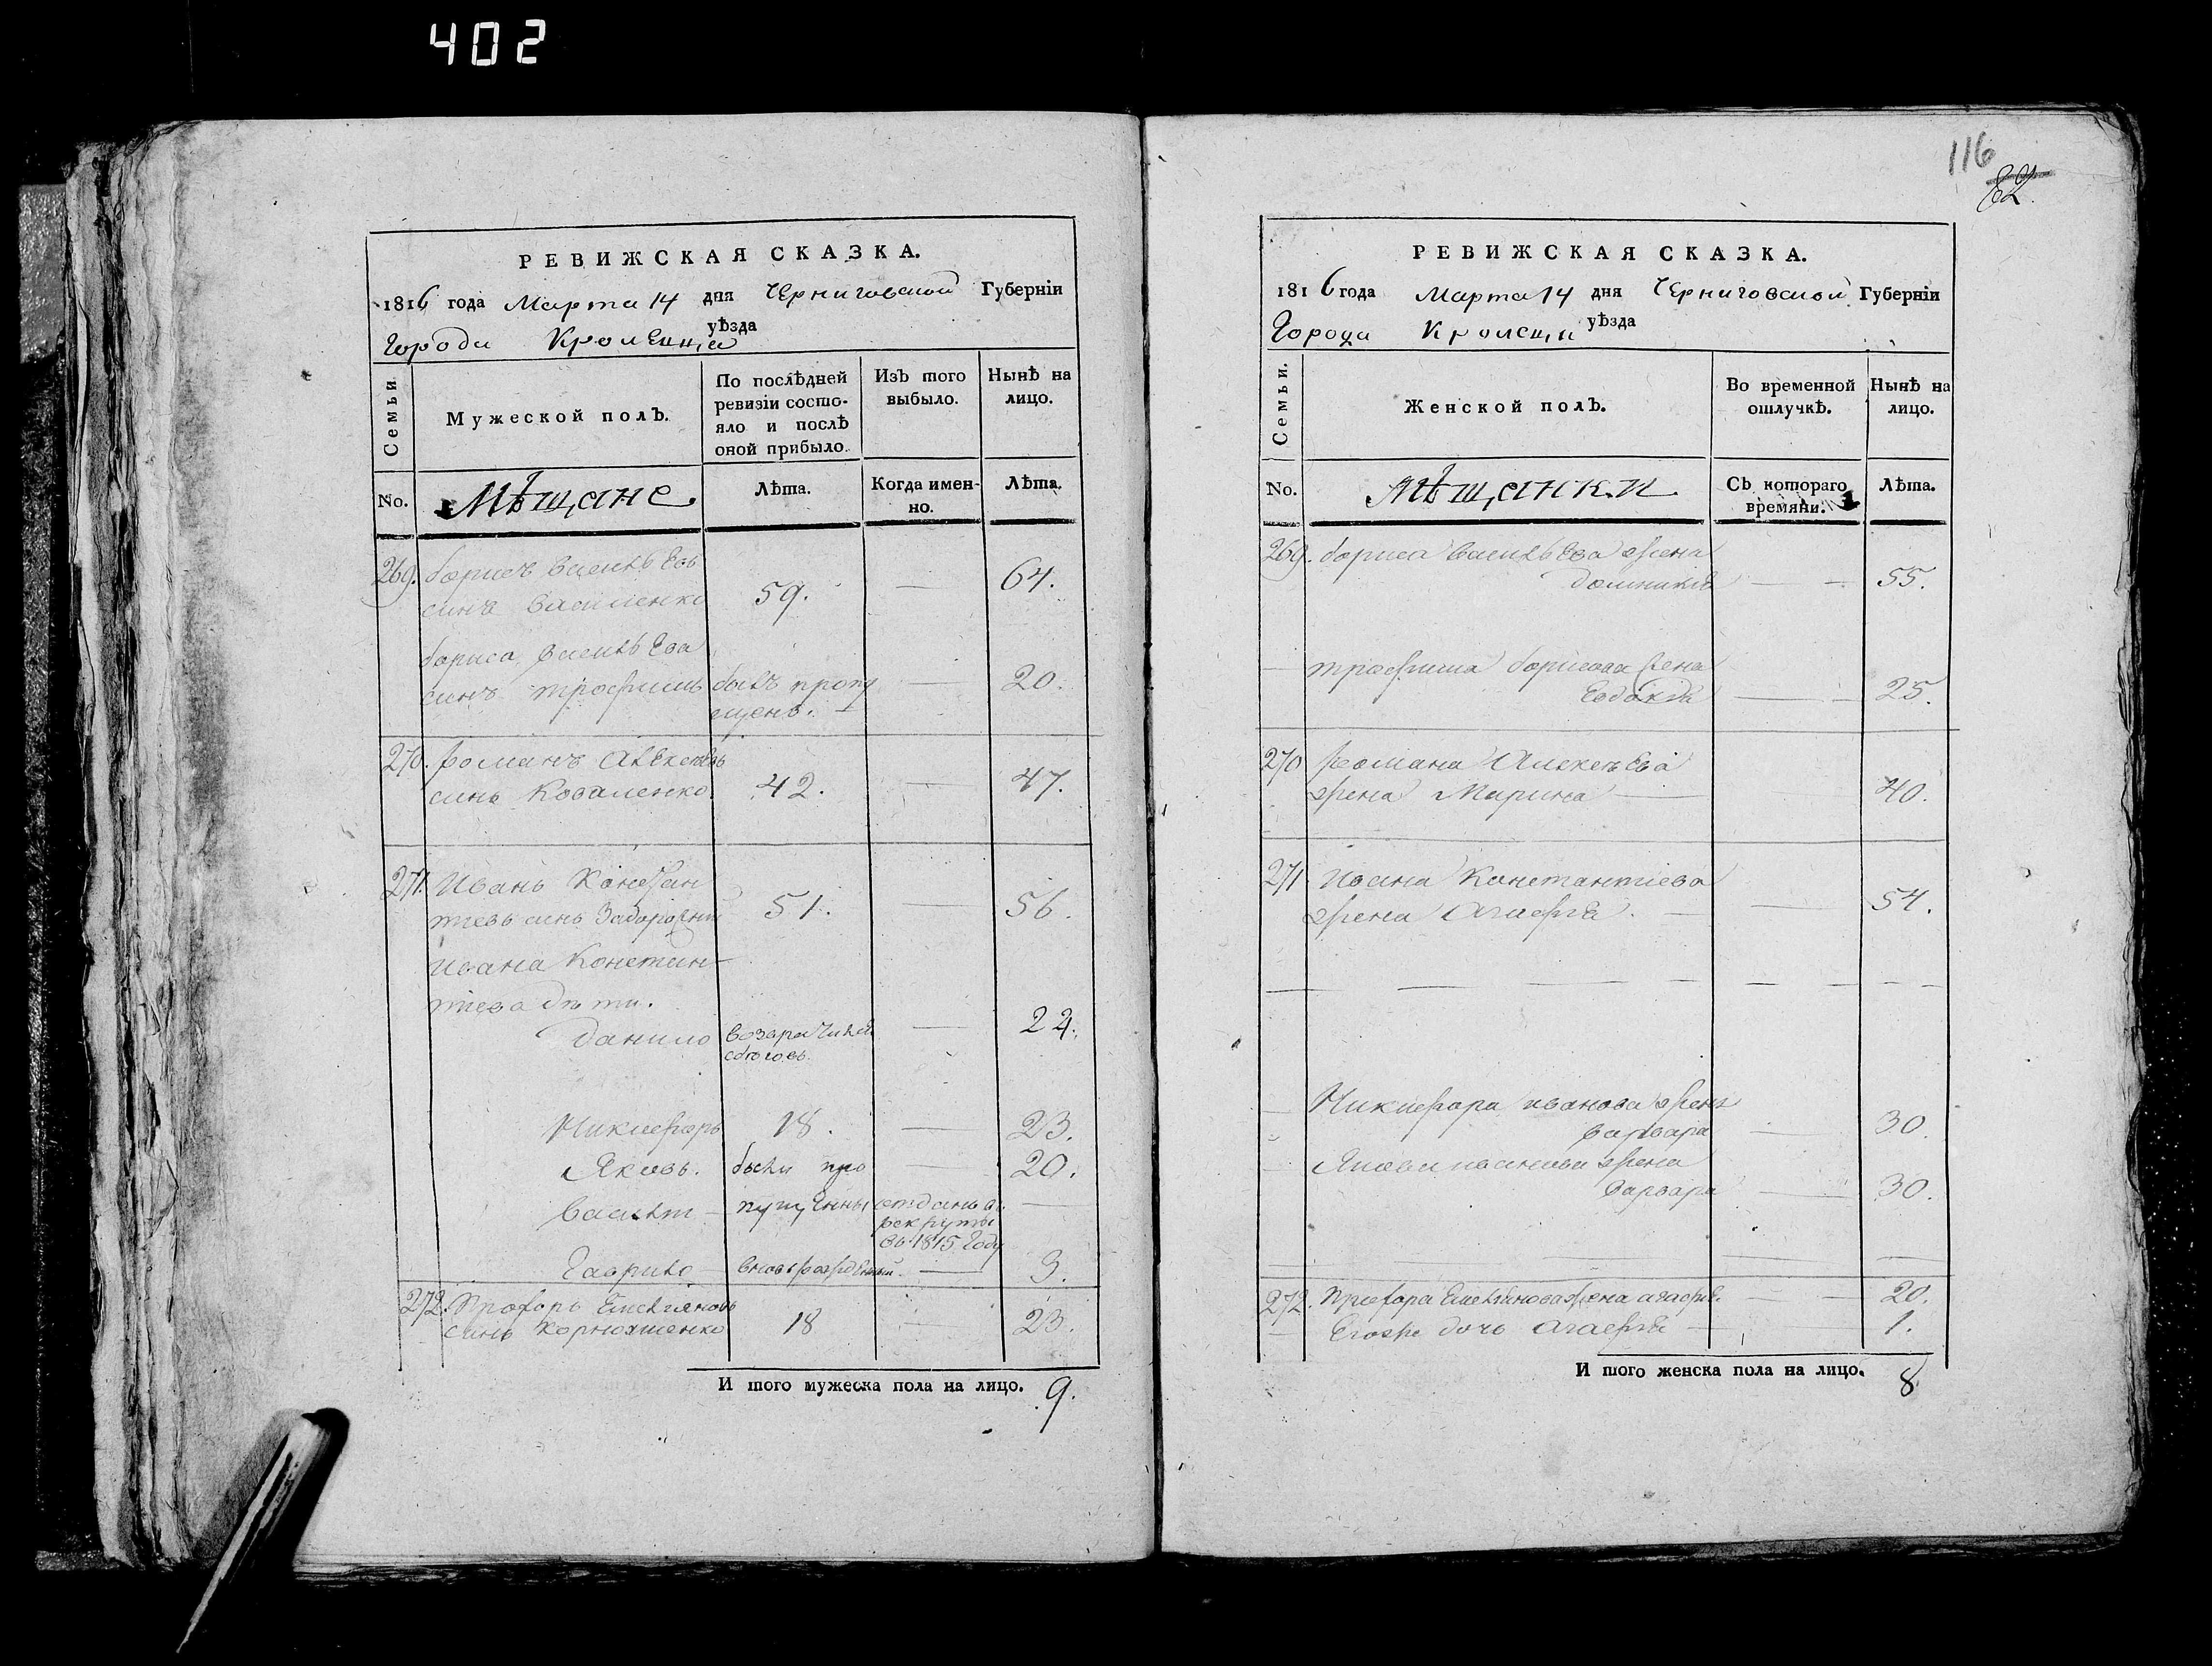 402
116
82.
РЕВИЖСКАЯ СКАЗКА.
1816 года Марта 14 дня Черниговской Губерніи
Города Кролевца уѣзда
Семьи
Мужеской полЪ.
По послѣдней ревизіи состояло и послѣ оной прибыло.
ИзЪ того выбыло.
Нынѣ на лицо.
No.
Мѣщане
Лѣта.
Когда именно.
Лѣта.
269. Борисъ Васильевъ
синъ Василенко 59. — 64.
Бориса Васильева
синъ Трофимъ былъ пропу — 20.
щенъ.
270. Романъ Алексѣевъ
синъ Коваленко. 42. — 47.
271. Иванъ Констан
тіевъ синъ 51. — 56.
Ивана Констан-
тіева дѣти.
Данило — 22.
Никифоръ 18. — 23.
Яковъ. были про — 20.
Василь — пущенны отданъ въ —
рекруты
въ 1815 году
Гаврило — вновьрожденный. — 3.
272. Прохоръ Емельяновъ
синъ Корнюшенко 18 — 23.
И того мужеска пола на лицо. 9.
РЕВИЖСКАЯ СКАЗКА.
1816 года Марта 14 дня Черниговской Губерніи
Города Кролевца уѣзда
Семьи.
Женской полЪ.
Во временной отлучкѣ.
Нынѣ на лицо.
No.
Мѣщанки
СЬ котораго времяни.
Лѣта.
269. Бориса Васильева жена
— — 55.
— Трофима Борисова жена
Евдокія — — 25.
270 Романа Алексѣева
жена Марина — 40.
271 Ивана Константіева
жена Агафія. — — 54.
— Никифора Иванова жена
Варвара — 30.
— Якова Иванова жена
Варвара — 30.
272. Прохора Емельянова жена Агафія. — — 20.
— Егожъ дочь Агафія — 1.
И того женска пола на лицо. 8